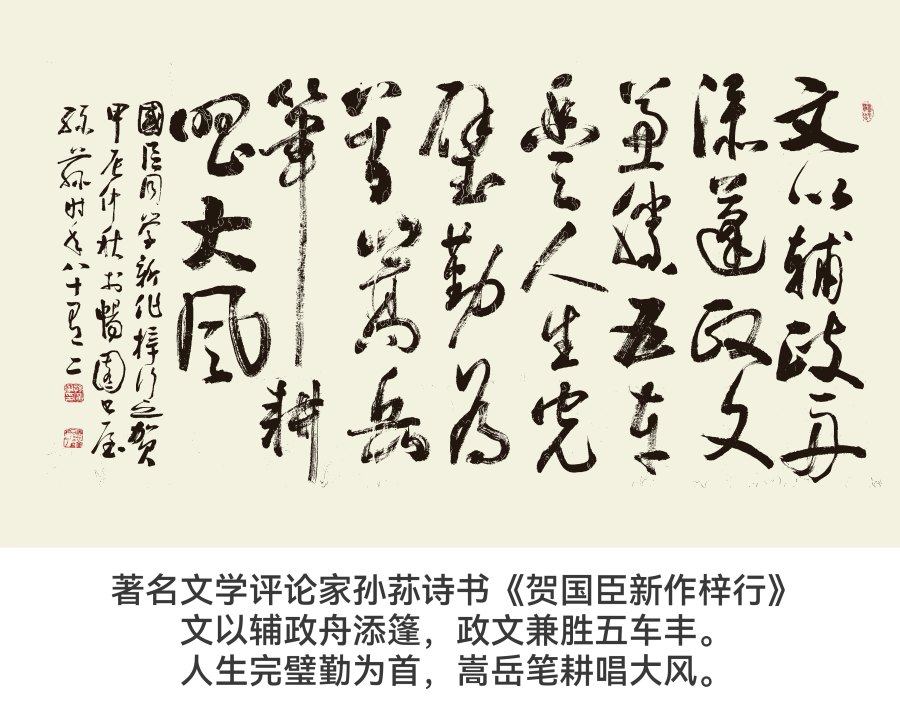 文以輔政舟
添蓬政文
兼勝五车
人生完
璧勤为
首嵩岳
筆耕
唱大風
國臣同学新作梓行之贺
甲辰仲秋于暢園
孫荪时年八十有二
著名文学评论家孙荪诗书《贺国臣新作梓行》
文以辅政舟添篷，政文兼胜五车丰。
人生完璧勤为首，嵩岳笔耕唱大风。